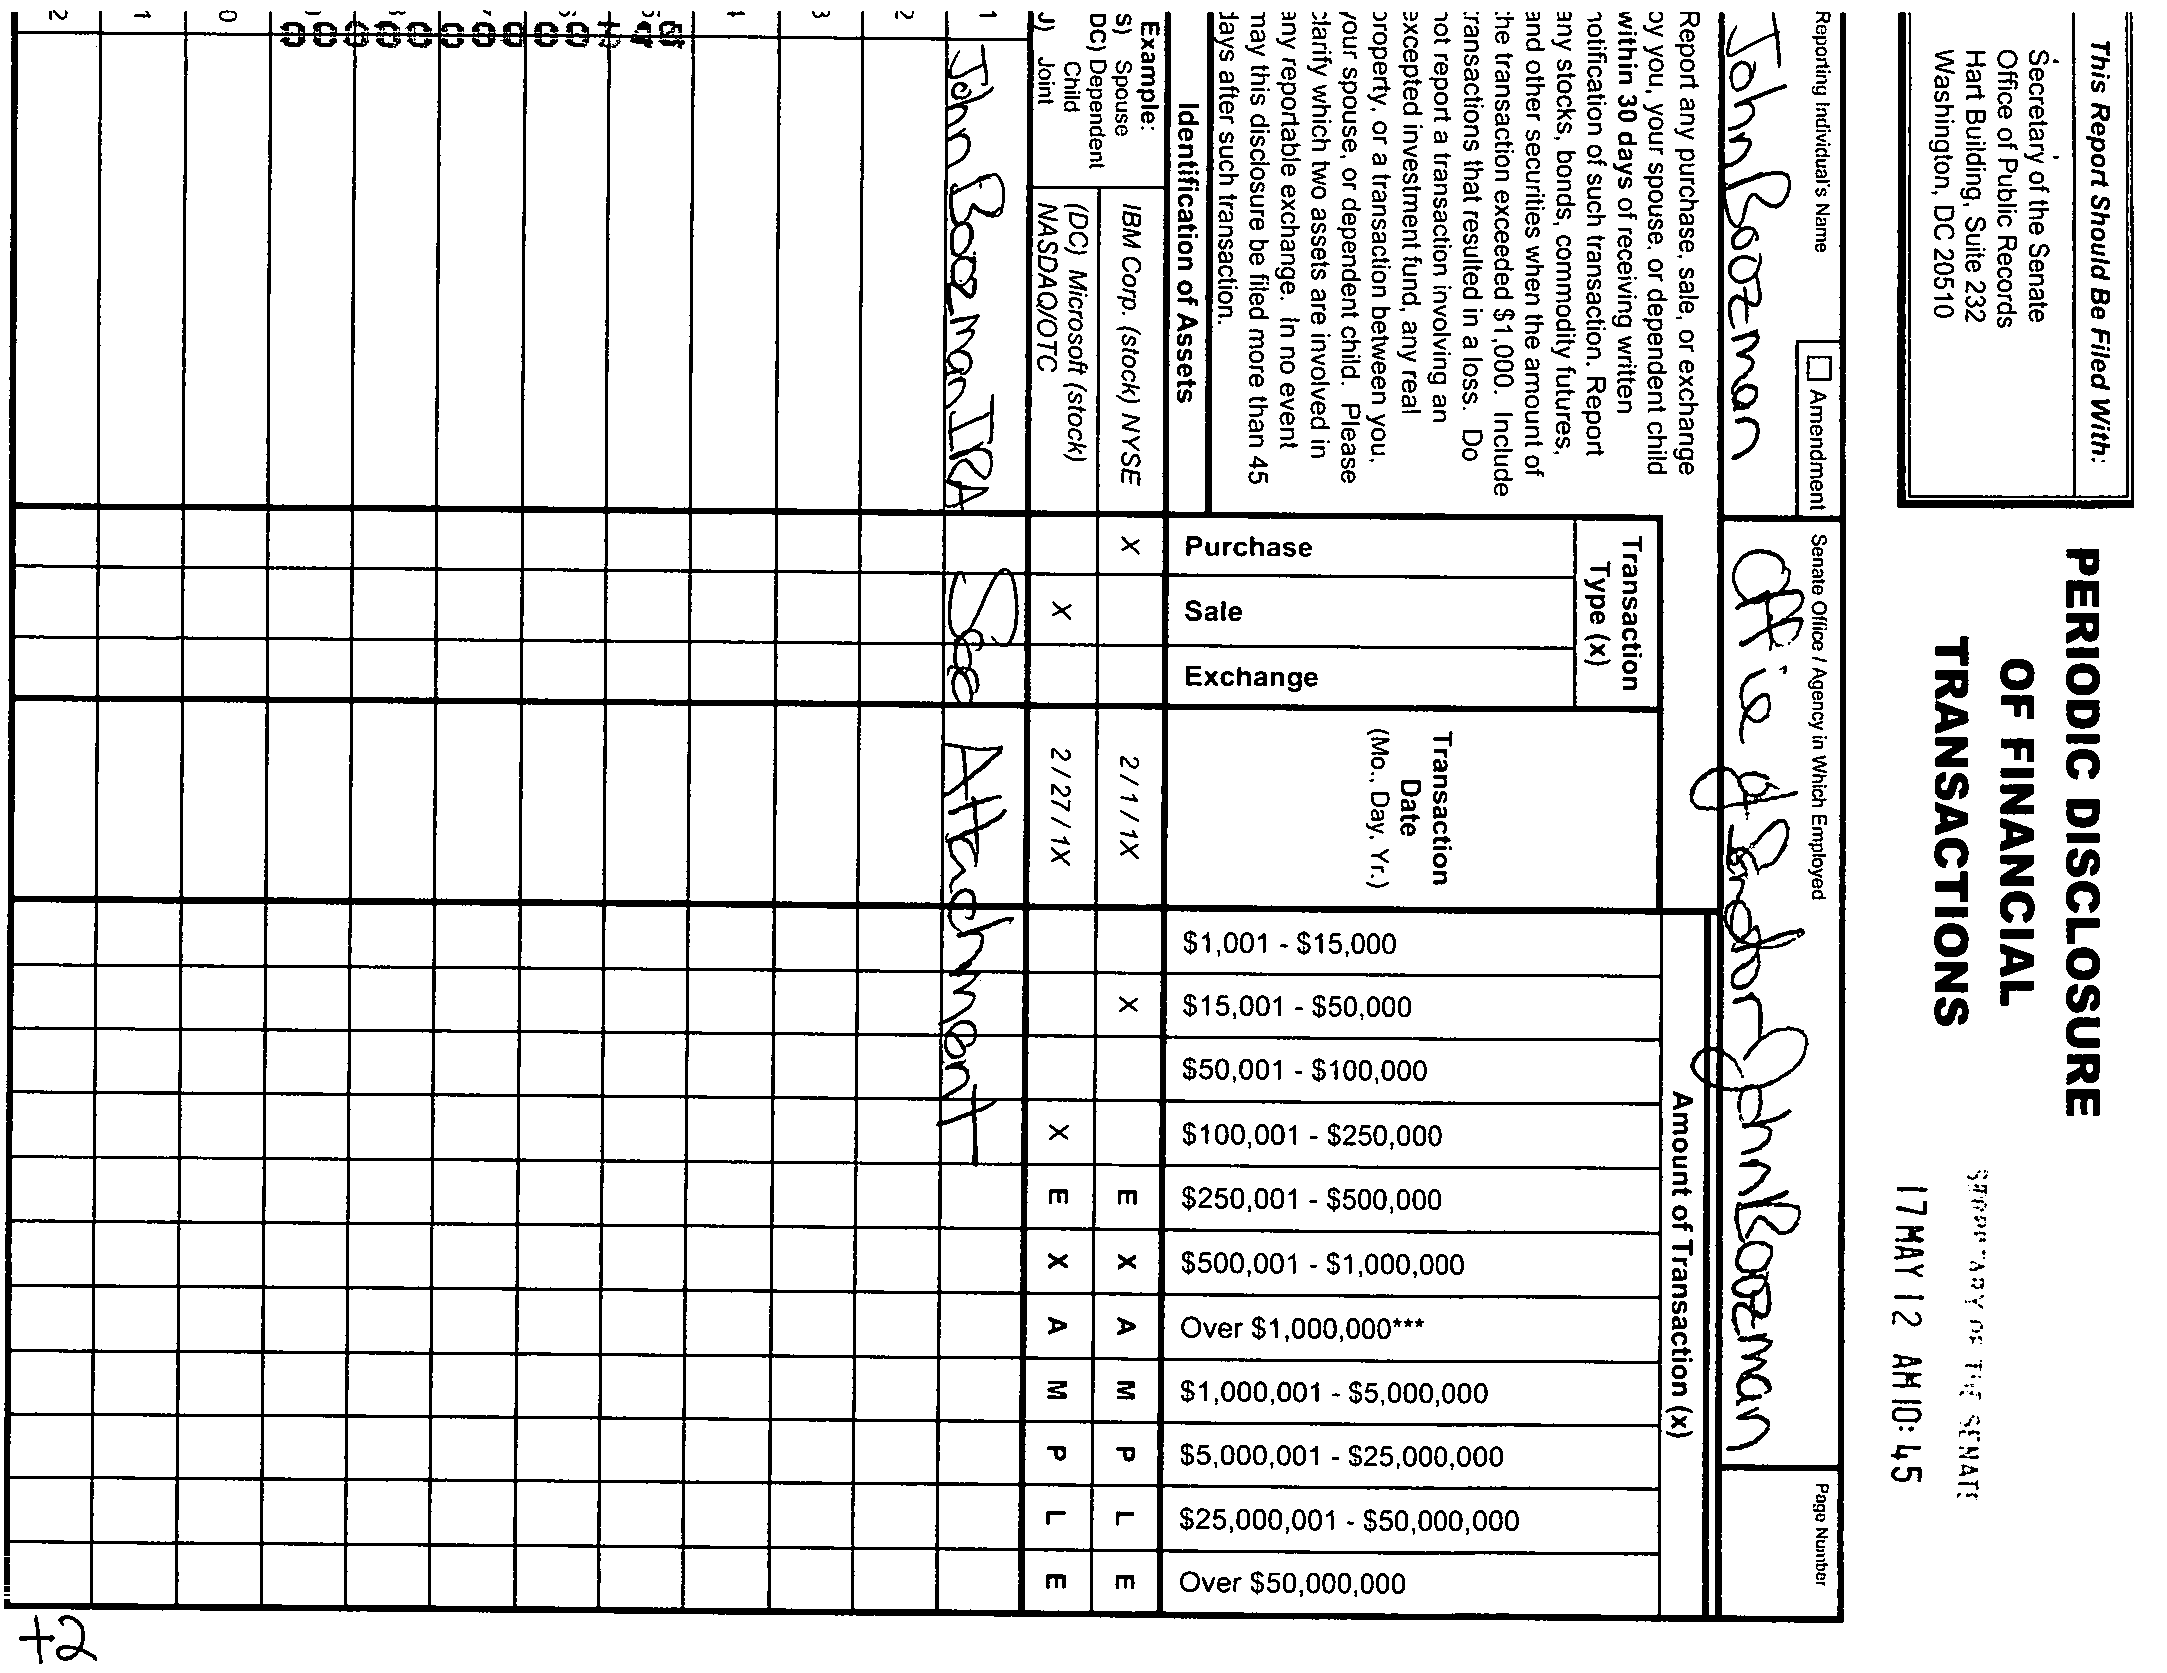 This Report Should Be Filed With:
Secretary of the Senate
Office of Public Records
Hart Building, Suite 232
Washington, DC 20510
PERIODIC DISCLOSURE
OF FINANCIAL
TRANSACTIONS
SECRETARY OF THE SENATE
17 MAY 12 AM 10: 45
Reporting Individual's Name
Amendment
John Boozman
Senate Office / Agency in Which Employed
Office of Senator John Boozman
Page Number
Report any purchase, sale, or exchange
by you, your spouse, or dependent child
within 30 days of receiving written
notification of such transaction. Report
any stocks, bonds, commodity futures,
and other securities when the amount of
the transaction exceeded $1,000. Include
transactions that resulted in a loss. Do
not report a transaction involving an
excepted investment fund, any real
property, or a transaction between you,
your spouse, or dependent child. Please
clarify which two assets are involved in
any reportable exchange. In no event
may this disclosure be filed more than 45
days after such transaction.
Identification of Assets
Transaction
Type (x)
Purchase
Sale
Exchange
Transaction
Date
(Mo., Day, Yr.)
Amount of Transaction (x)
$1,001 - $15,000
$15,001 - $50,000
$50,001 - $100,000
$100,001 - $250,000
$250,001 - $500,000
$500,001 - $1,000,000
Over $1,000,000***
$1,000,001 - $5,000,000
$5,000,001 - $25,000,000
$25,000,001 - $50,000,000
Over $50,000,000
Example:
S) Spouse
DC) Dependent
Child
J) Joint
IBM Corp. (stock) NYSE X 2 / 1 / 1X X E X A M P L E
(DC) Microsoft (stock)
NASDAQ/OTC X 2 / 27 / 1X X E X A M P L E
1 John Boozman IRA See Attachment
2
3
0
1
2
+2